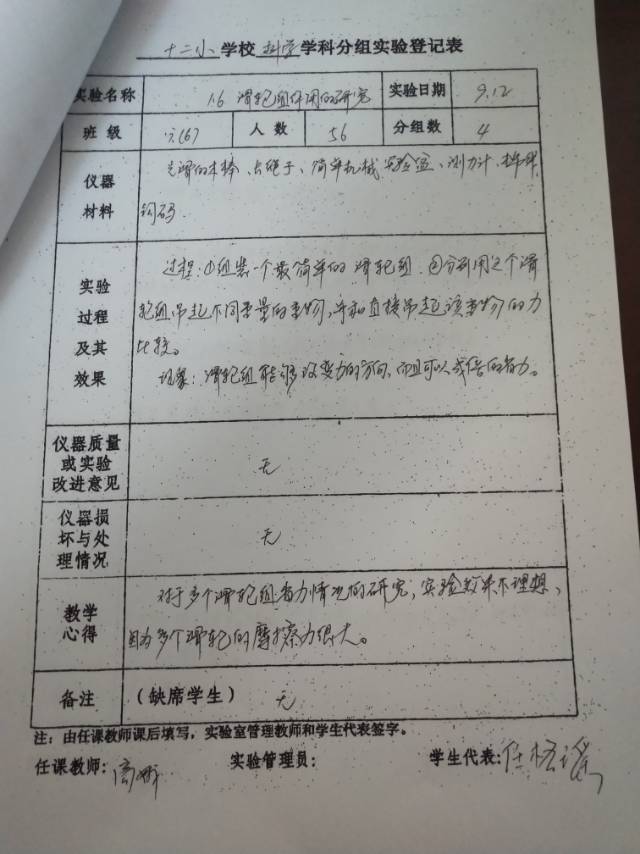 十二小学校科学学科分组实验登记表
实验名称 1.6 滑轮组作用的研究 实验日期 9.12
班级 六(6) 人数 56 分组数 4
仪器材料 光滑的木棒、长绳子、简单机械实验盒、测力计、
钩码
实验过程及其效果 过程:①组装一个最简单的滑轮组。②分别用这个滑
轮组吊起不同重量的重物,并和直接吊起该重物的力
比较。
现象:滑轮组能够改变力的方向,而且可以成倍的省力。
仪器质量或实验改进意见 无
仪器损坏与处理情况 无
教学心得 对于多个滑轮组省力情况的研究,实验效果不理想,
因为多个滑轮的摩擦力很大。
备注 (缺席学生) 无
注:由任课教师课后填写,实验室管理教师和学生代表签字。
任课教师: 高 实验管理员: 学生代表: 任